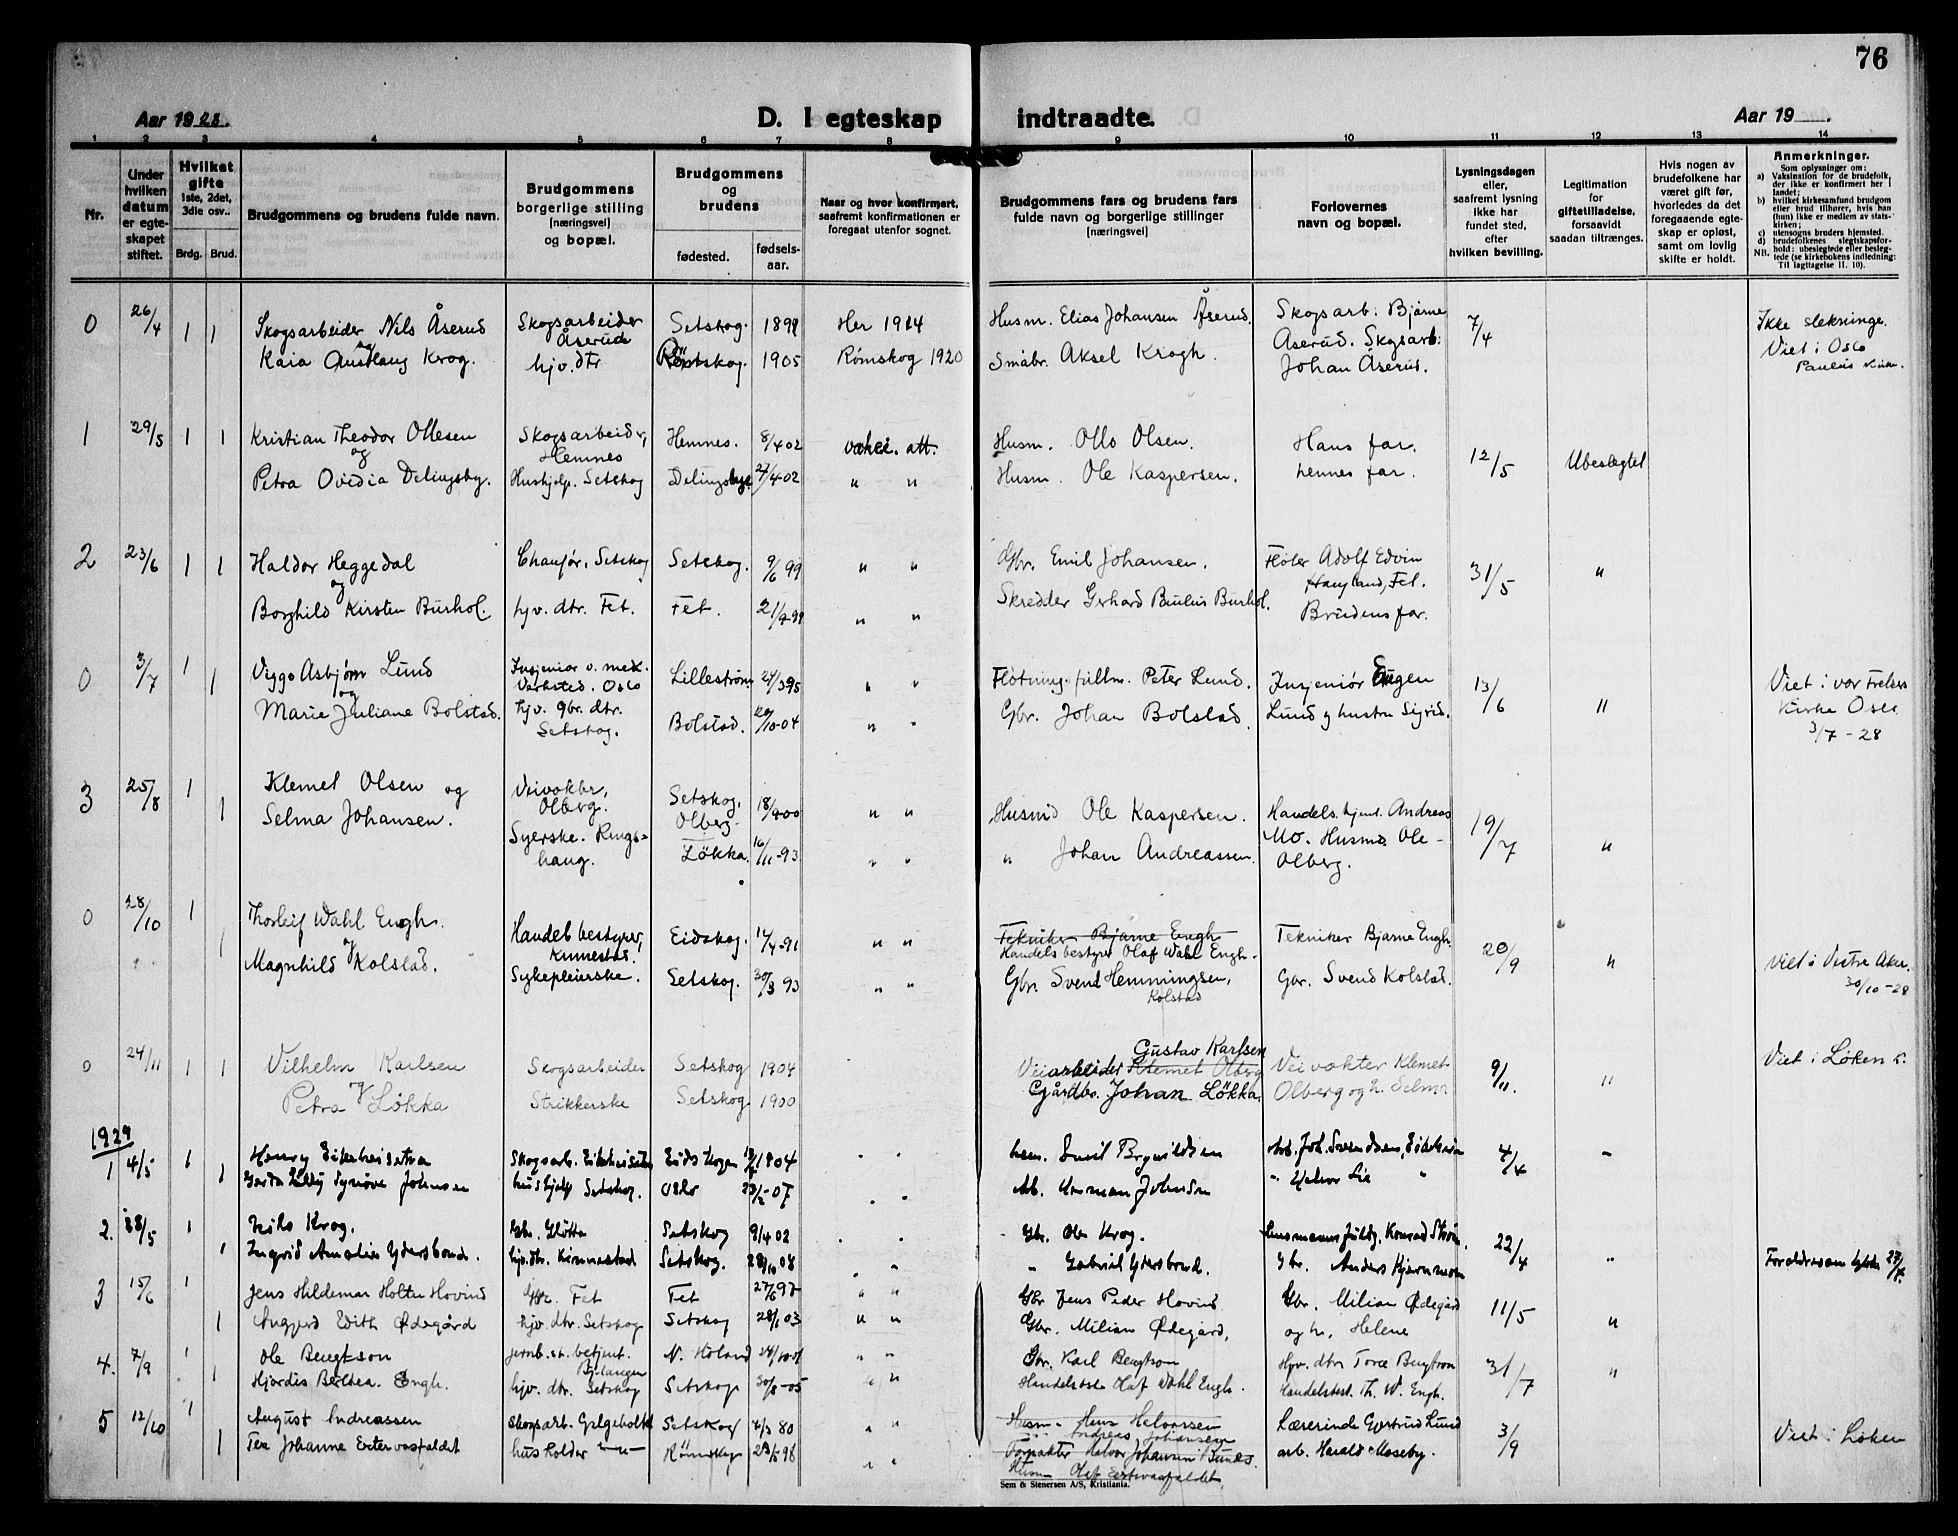 76
Aar 1928.
D. I egteskap indtraadte.
Aar 19 .
1 2 3 4 5 6 7 8 9 10 11 12 13 14
Nr.
Under hvilken datum er egteskapet stiftet.
Hvilket gifte 1ste, 2det, 3die osv..
Brdg. Brud.
Brudgommens og brudens fulde navn.
Brudgommens borgerlige stilling [næringsvei] og bopæl.
Brudgommens og brudens
fødested.
fødselsaar.
Naar og hvor konfirmert, saafremt konfirmationen er foregaat utenfor sognet.
Brudgommens fars og brudens fars fulde navn og borgerlige stillinger [næringsvei]
Forlovernes navn og bopæl.
Lysningsdagen eller, saafremt lysning ikke har fundet sted, efter hvilken bevilling.
Legitimation for giftetilladelse, forsaavidt saadan tiltrænges.
Hvis nogen av brudefolkene har været gift før, hvorledes da det foregaaende egteskap er opløst, samt om lovlig skifte er holdt.
Anmerkninger.
Som oplysninger om:
a) Vaksination for de brudefolk, der ikke er konfirmert her i landet;
b) hvilket kirkesamfund brudgom eller brud tilhører, hvis han (hun) ikke er medlem av statskirken;
c) utensogns bruders hjemsted.
d) brudefolkenes slegtskapsforhold: ubeslegtede eller beslegtede (se kirkebokens indledning: NB. Til iagttagelse II. 10).
0 26/4 1 1 Skogsarbeider Nils Åserud Skogsarbeider Åserud Setskog. 1899 Her 1914 Husm. Elias Johansen Åserud. Skogsarb: Bjarne 7/4 Ikke slektninge.
og Kaia Krog. hjv. dtr Römskog. 1905 Rømskog 1920 Småbr. Aksel Krogh. Åserud. Skogsarb: Johan Åserud. Viet i Oslo Paulus Kirke.
1 29/5 1 1 Kristian Theodor Ollesen Skogsarbeider, Hemnes Hemnes. 8/4 02 vakci. att. Husm. Olls Olsen. Hans far. 12/5 Ubeslegtet
og Petra Ovidia Delingsby. Hushjelp. Setskog Delingsbye 27/4-02 " " Husm. Ole Kaspersen. hennes far.
2 23/6 1 1 Haldor Heggedal Chaufør, Setskog Setskog. 9/6 99 " " Gbr. Emil Johansen. Fløter Adolf Edvin 31/5 "
og Borghild Kirsten Burhol. hjv. dtr. Fet. Fet. " " Skredder Gerhard Paulus Burhol. Haugland, Fet. Brudens far.
0 3/7 1 1 Viggo Asbjørn Lund Insjeniør v. mek. Verksted. Oslo Lillestrøm 24/3 95 " " Fløtning. fullm. Peter Lund. Insjeniør Eugen 13/6 " Viet i vor Frelsers
og Marie Juliane Bolstad. hjv. gbr. dtr. Setskog. Bolstad. 20/10-04 " " Gbr. Johan Bolstad. Lund og hustru Sigrid. Kirke Oslo 3/7-28
3 25/8 1 1 Klemet Olsen og Veivokter, Olberg. Setskog, Olberg 18/9 00 " " Husmd Ole Kaspersen. Handels. bjent. Andreas 19/7 "
Selma Johansen. Syerske. Ringshaug. Løkka. 16/11-93 " " " Johan Andreassen. Mo. Husmd. Ole Olberg.
0 28/10 1 1 Thorleif Wahl Engh. Handelbestyrer, Kinnestad. Eidskog. 17/4-91 " " Tekniker Bjarne Engh Handelsbestyrer Olaf Wahl Engh. Tekniker Bjarne Engh. 20/9 "
og Magnhild Kolstad. Sykepleierske. Setskog. 30/3 93 " " Gbr. Svend Hemmingsen, Kolstad Gbr. Svend Kolstad. Viet i Vestre Aker. 30/10-28
0 24/11 1 1 Vilhelm Karlsen Skogsarbeider Setskog 1904 Veiarbeider Klemet Olberg Gustav Karlsen Veivokter Klemet 9/11. " Viet i Løken K.
og Petra Løkka Strikkerske Setskog 1900 Gårdbr. Johan Løkka. Olberg og h. Selma
1929
1 4/5 1 1 Henry Eikeheisetra Skogsarb. Eikeheiseter Eidskogen 1904 hsm. Emil Brynildsen Arb. Joh. Svendsen, 4/4 "
Gerda Lilly Synøve Johnsen hushjelp Setskog. Oslo -07 Ab. Herman Johnsen " Halvor Lie "
2. 28/5 1 1 Nils Krog. Gbr. Glötta Setskog 9/4 02 Gbr. Ole Krog. Lensmannsfuldm. Konrad Strøm. 22/4 "
Ingrid Amalie Ydersbond. hjv. dtr. Kinnestad Setskog. 28/10 08 " " " Gabriel Ydersbond. Gbr. Anders Kjernmoen
3 15/6 1 1 Jens Hildemar Holter Hovind Gbr. Fet Fet 27/6 97 " " Gbr Jens Peder Hovind Gbr. Milian Ødegård 11/5 "
Angjerd Edith Ødegård hjv. dtr. Setskog Setskog 28/1 03 " " Gbr. Milian Ødegård, og h. Helene
4. 7/9 1 1 Ole Bengtson jernb. st. betjent. Bjelangen N. Høland 24/10-01 " " Gbr. Karl Bengtson Hjv. dtr Tora Bengtson 31/7 "
Hjørdis Berthea Engh. hjv. dtr. Setskog Setskog 30/8-05 " " Handelsbest. Olaf Wahl Engh. Handelsbest. Th. W. Engh.
5 12/10 1 1 August Andreassen Skogsarb. Gjelgeholtet Setskog 4/3 80 " " Husm. Hans Halvorsen Andreas Johansen Lærerinde Gjertrud Lund 3/9 Viet i Løken
Tea Johanne Ertevasfaldet husholder -"- Römskog 98 " " Forpakter Halvor Johansen Husm Olaf Ertevasfaldet arb. Harald Moseby.
Sem & Stenersen A/S, Kristiania.